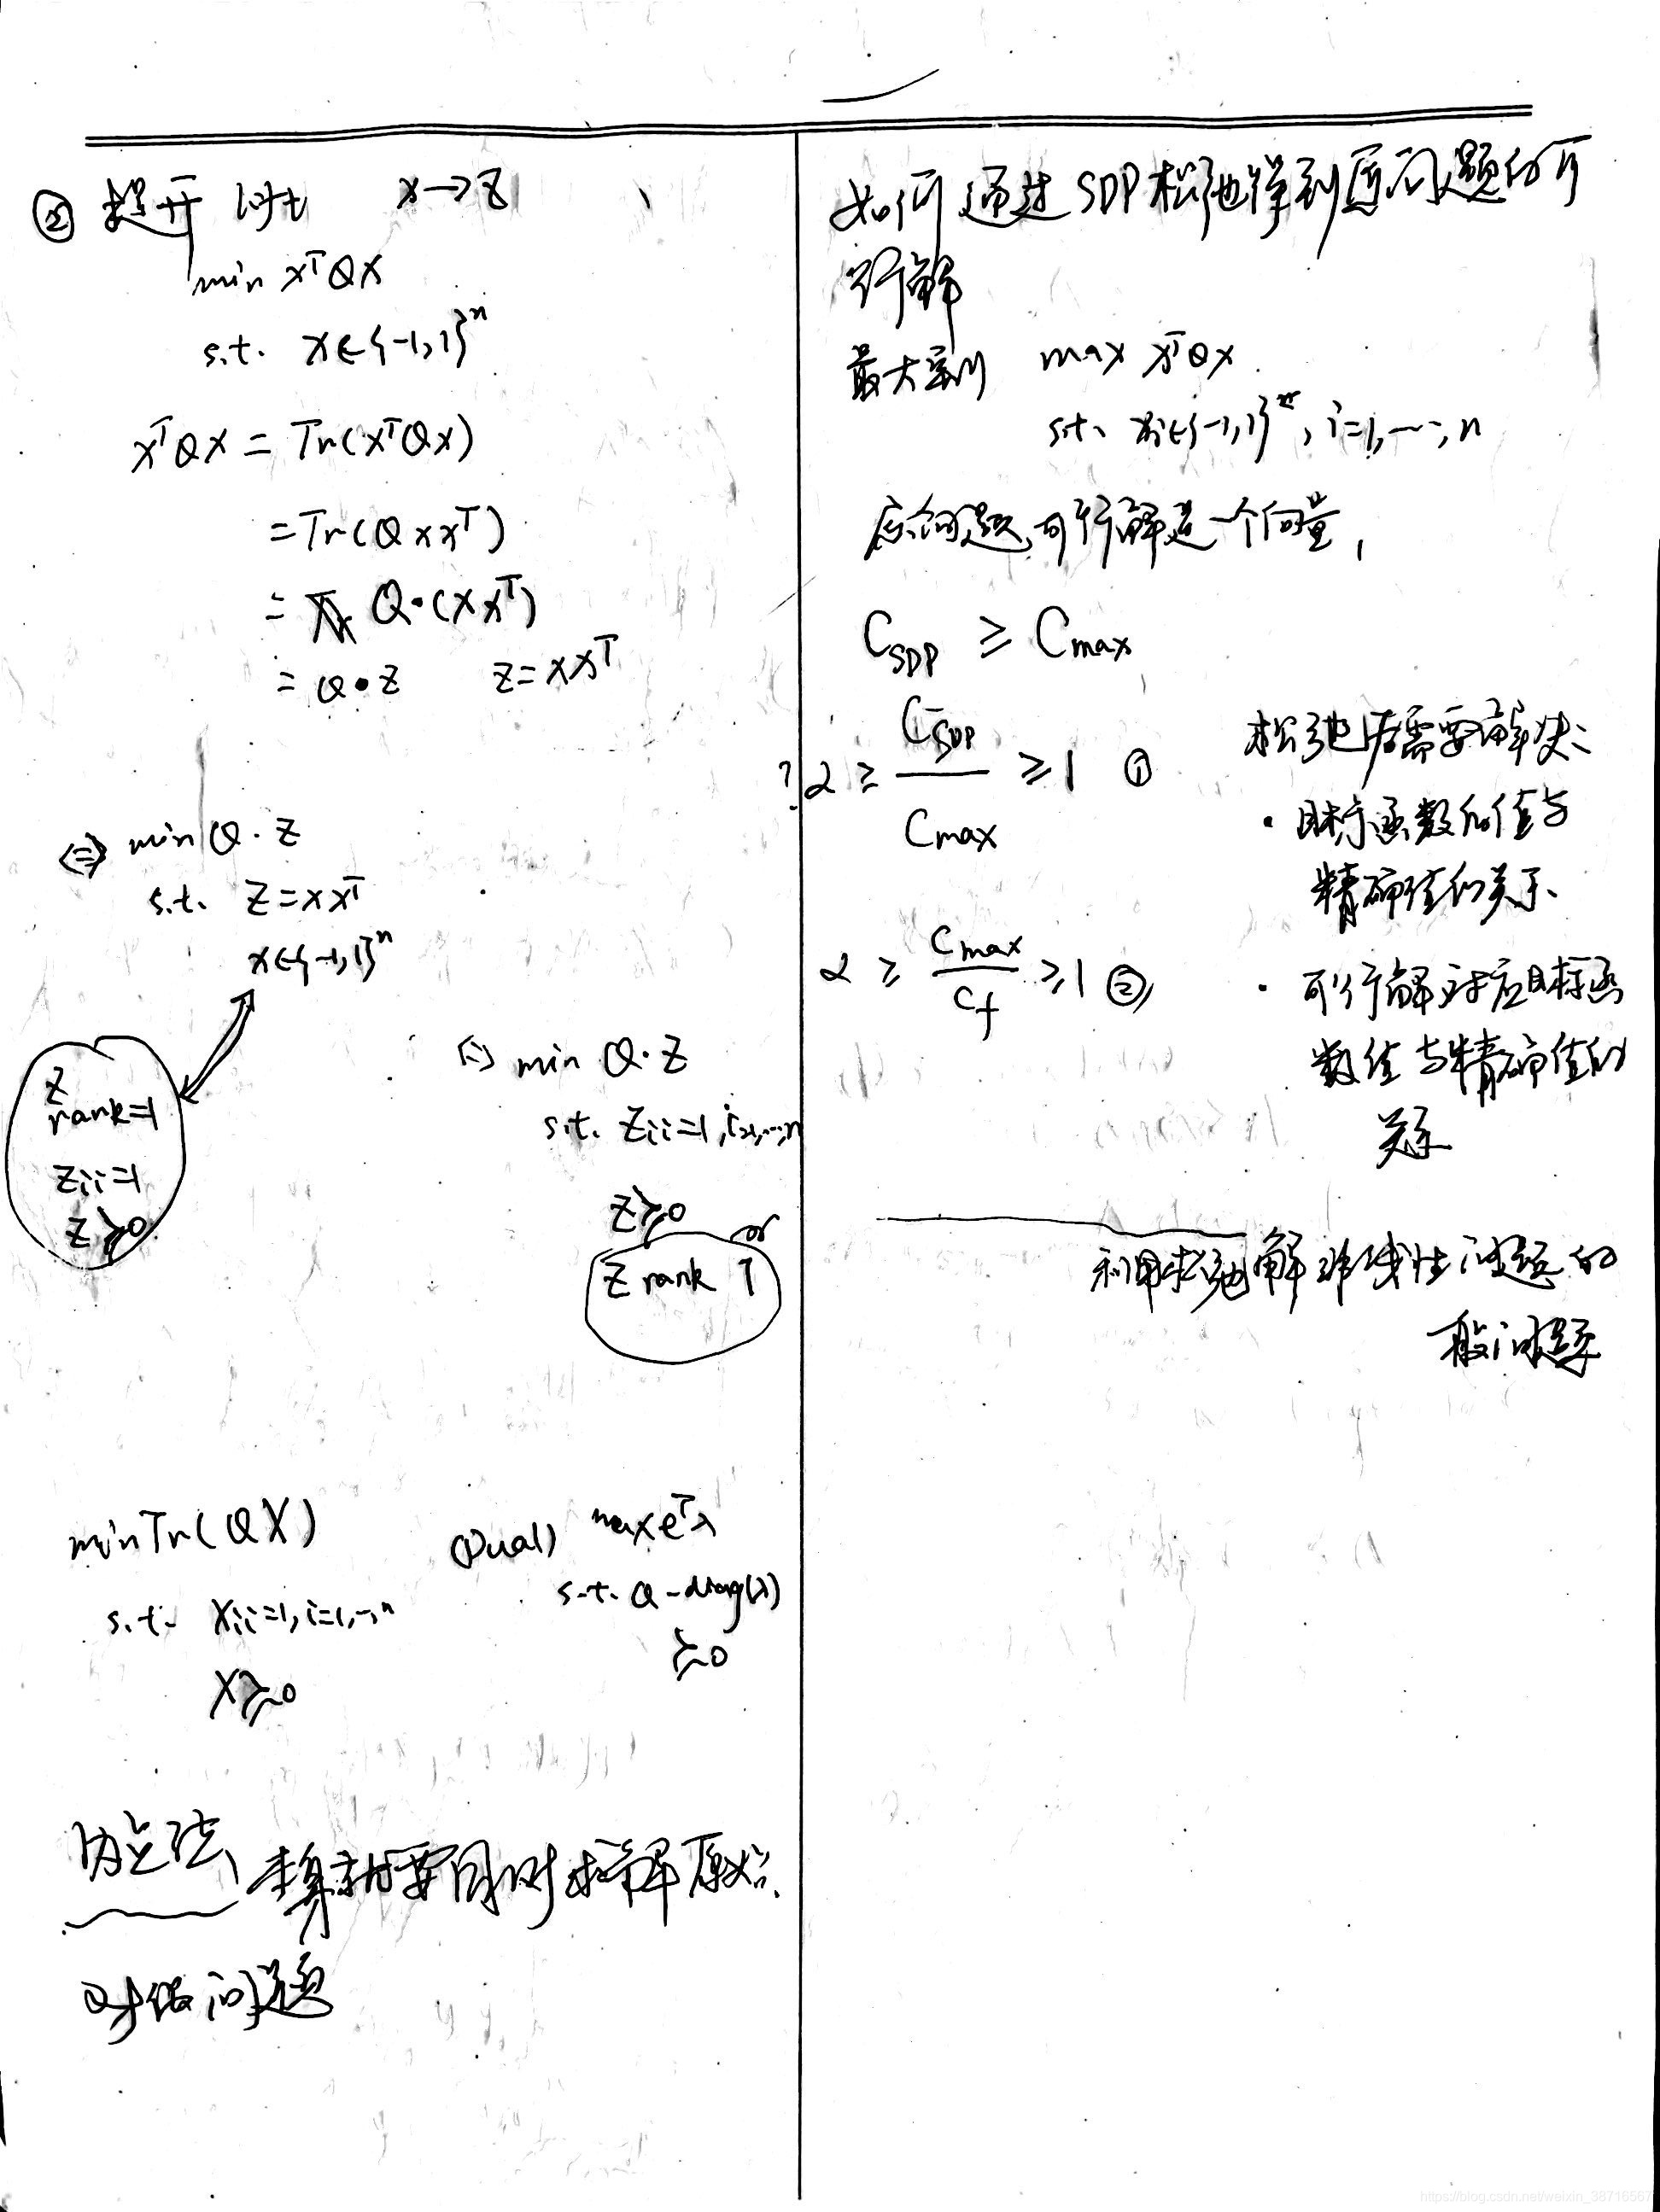 ② 提升 lift x→Z
min xᵀQx
s.t. x∈{-1,1}ⁿ
xᵀQx = Tr(xᵀQx)
= Tr(Qxxᵀ)
= Q•(xxᵀ)
= Q•Z Z=xxᵀ
⇔ min Q·Z
s.t. Z=xxᵀ
x∈{-1,1}ⁿ
Z
rank=1
Zii=1
Z≽0
⇔ min Q·Z
s.t. Zii=1, i=1,…,n
Z≽0
or
Z rank 1
min Tr(QX)
s.t. Xii=1, i=1,…,n
X≽0
(Dual) max eᵀλ
s.t. Q-diag(λ)
≽0
内点法、本身就要同时求解原始、
对偶问题
如何通过SDP松弛得到原问题的可
行解
最大割 max xᵀQx
s.t. xi∈{-1,1}, i=1,…,n
原问题可行解是一个向量,
C_SDP ≥ Cmax
? α ≥ C_SDP / Cmax ≥ 1 ①
α ≥ Cmax / Cf ≥ 1 ②
松弛后需要解决:
· 目标函数的值与
精确值的关系、
· 可行解对应目标函
数值与精确值的
关系
利用松弛解非线性问题的
一般问题
https://blog.csdn.net/weixin_38716567